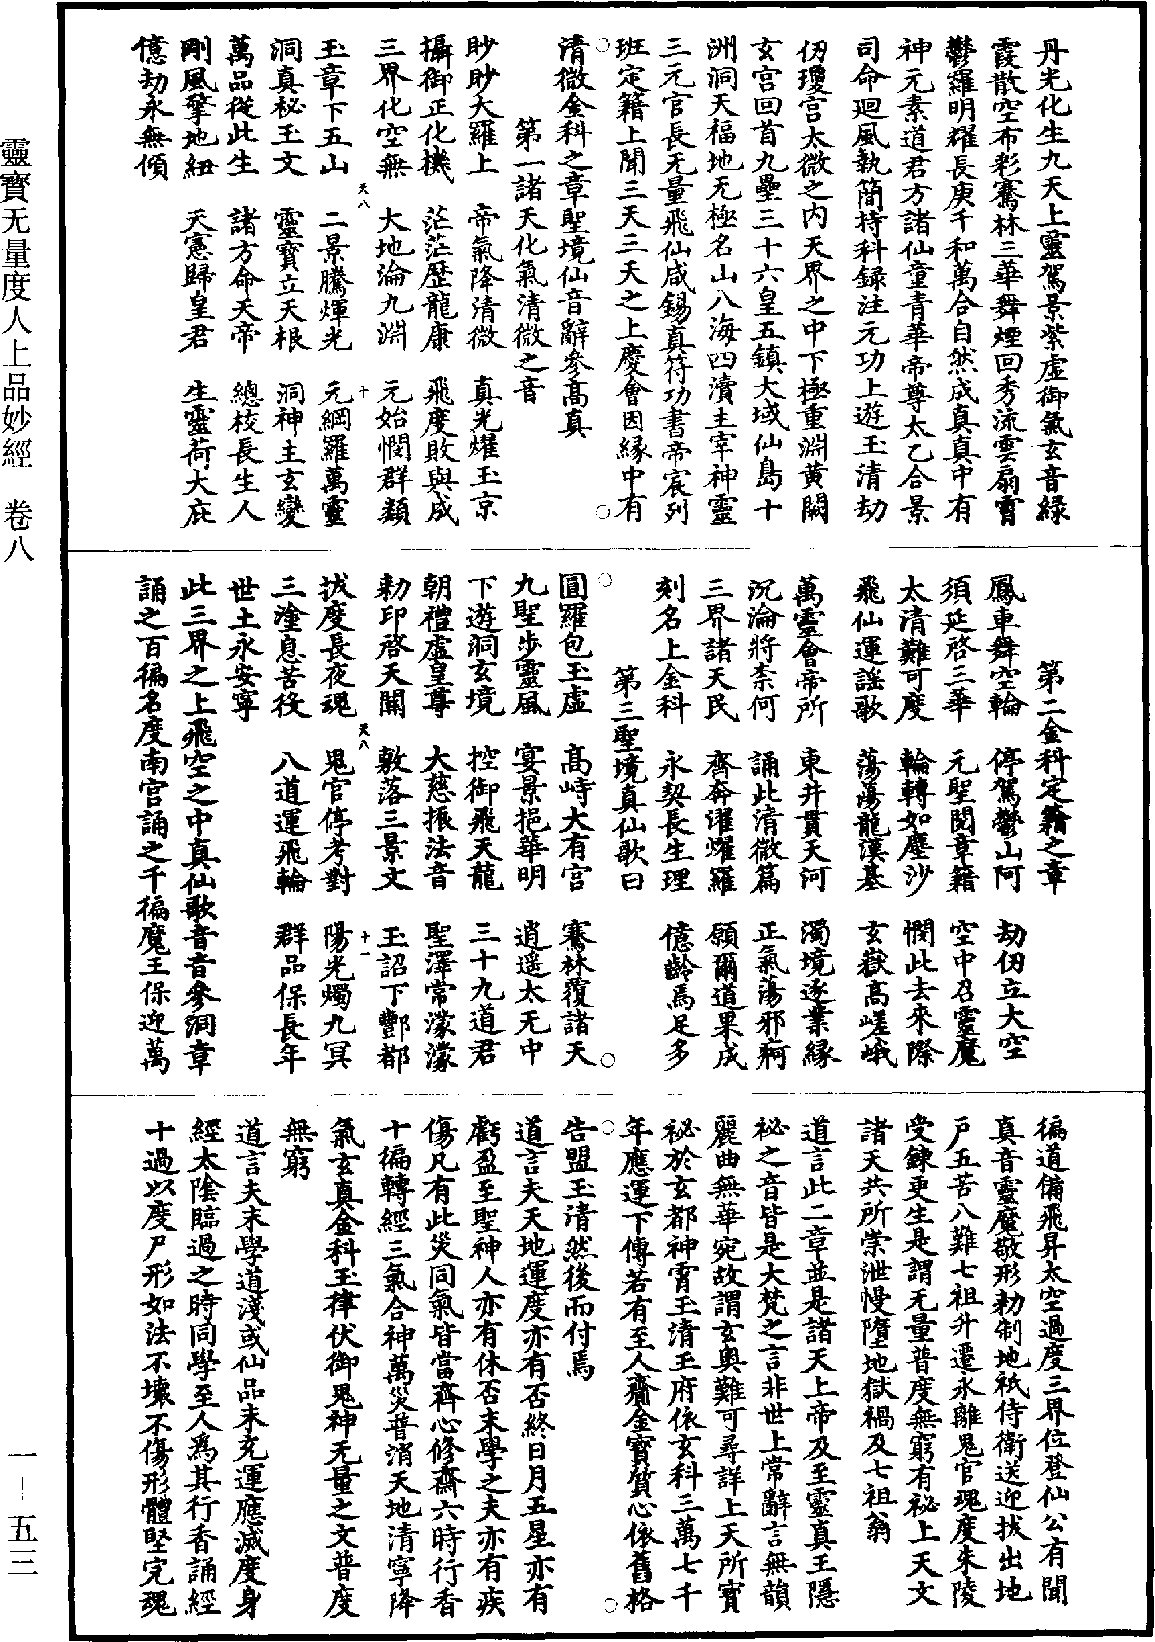 丹光化生九天上靈駕景紫虛御氣玄音綠
霞散空布彩騫林三華舞煙回秀流雲扇霄
鬱羅明耀長庚千和萬合自然成真真中有
神元素道君方諸仙童青華帝尊太乙合景
司命迴風執簡持科錄注元功上遊玉清劫
仞瓊宫太微之内天界之中下極重淵黃闕
玄宫回首九壘三十六皇五鎮大域仙島十
洲洞天福地无極名山八海四瀆主宰神靈
三元官長无量飛仙咸錫真符功書帝宸列
班定籍上聞三天三天之上慶會因緣中有
清微金科之章聖境仙音辭參高真
第一諸天化氣清微之音
眇眇大羅上 帝氣降清微 真光燿玉京
攝御正化機 茫茫歷龍康 飛度敗與成
三界化空無 大地淪九淵 元始憫群類
玉章下五山 二景騰煇光 元綱羅萬靈
洞真祕玉文 靈寶立天根 洞神主玄變
萬品從此生 諸方命天帝 總校長生人
剛風擎地紐 天憲歸皇君 生靈荷大庇
億劫永無傾
天八
十
第二金科定籍之章
鳳車舞空輪 停駕鬱山阿 劫仞立大空
須延啓三華 元聖閱章籍 空中召靈魔
太清難可度 輪轉如塵沙 憫此去來際
飛仙運謡歌 蕩蕩龍漢基 玄嶽高嵯峨
萬靈會帝所 東井貫天河 濁境逐業緣
沉淪將柰何 誦此清微篇 正氣蕩邪痾
三界諸天民 齊奔濯燿羅 願爾道果成
刻名上金科 永契長生理 億齡焉足多
第三聖境真仙歌曰
圓羅包玉虛 高峙大有宫 騫林覆諸天
九聖步靈風 宴景挹華明 逍遥太无中
下遊洞玄境 控御飛天龍 三十九道君
朝禮虛皇尊 大慈振法音 聖澤常濛濛
勑印啓天關 敷落三景文 玉詔下酆都
拔度長夜魂 鬼官停考對 陽光燭九冥
三塗息苦役 八道運飛輪 群品保長年
世土永安寧
天八
十一
此三界之上飛空之中真仙歌音音參洞章
誦之百徧名度南宫誦之千徧魔王保迎萬
徧道備飛昇太空過度三界位登仙公有聞
真音靈魔敬形勑制地祇侍衛送迎拔出地
户五苦八難七祖升遷永離鬼官魂度朱陵
受鍊更生是謂无量普度無窮有祕上天文
諸天共所崇泄慢墮地獄禍及七祖翁
道言此二章並是諸天上帝及至靈真王隱
祕之音皆是大梵之言非世上常辭言無韻
麗曲無華宛故謂玄奥難可尋詳上天所寶
祕於玄都神霄玉清王府依玄科三萬七千
年應運下傳若有至人齎金寶質心依舊格
告盟玉清然後而付焉
道言夫天地運度亦有否終日月五星亦有
虧盈至聖神人亦有休否末學之夫亦有疾
傷凡有此災同氣皆當齊心修齋六時行香
十徧轉經三氣合神萬災普消天地清寧降
氣玄真金科玉律伏御鬼神无量之文普度
無窮
道言夫末學道淺或仙品未充運應滅度身
經太陰臨過之時同學至人爲其行香誦經
十過以度尸形如法不壞不傷形體堅完魂
靈寶无量度人上品妙經 卷八
一—五三